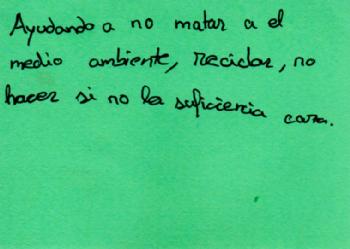 Ayudando a no matar a el
medio ambiente, reciclar, no
hacer si no la suficiencia caza.